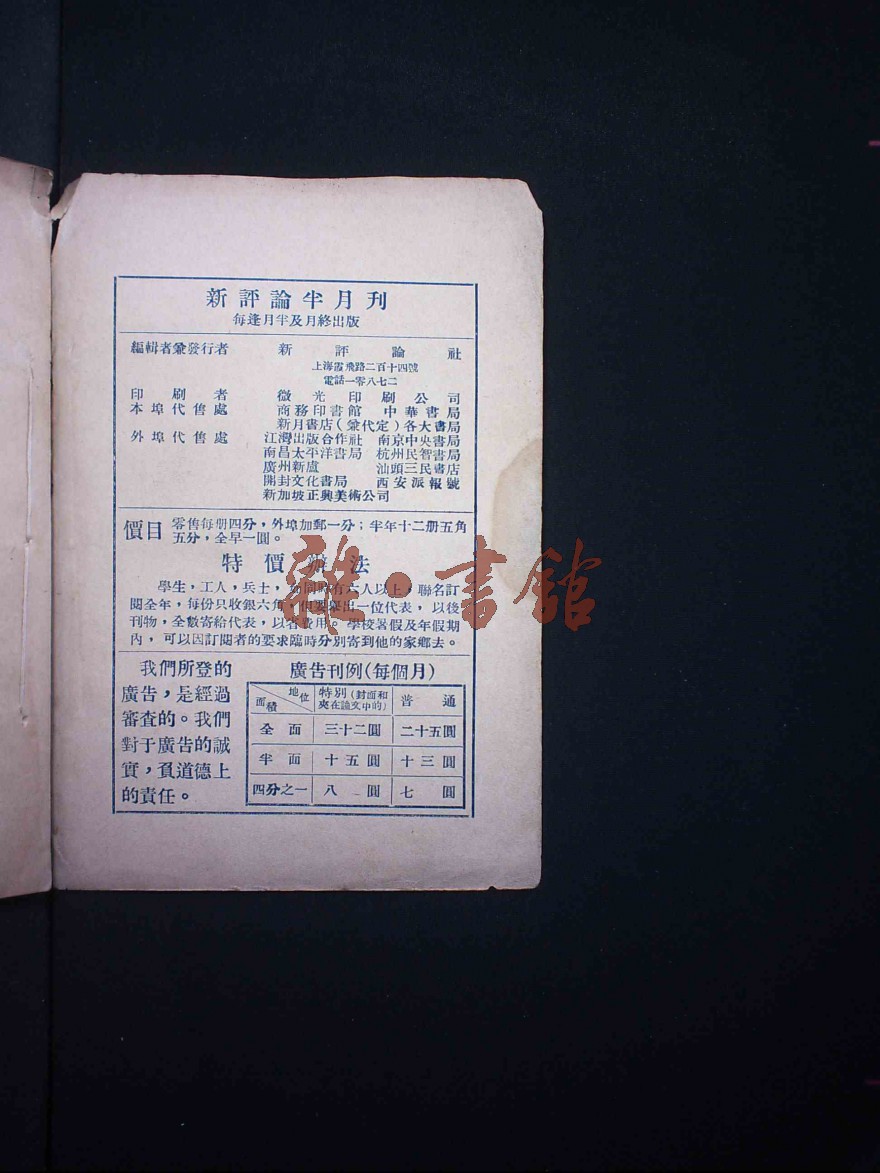 新評論半月刊
每逢月半及月終出版
編輯者兼發行者 新評論社
上海霞飛路二百十四號
電話一零八七二
印刷者 微光印刷公司
本埠代售處 商務印書館 中華書局
新月書店（兼代定）各大書局
外埠代售處 江灣出版合作社 南京中央書局
南昌太平洋書局 杭州民智書局
廣州新盧 汕頭三民書店
開封文化書局 西安派報號
新加坡正興美術公司
價目 零售每册四分，外埠加郵一分；半年十二册五角
五分，全早一圓。
特價辦法
學生，工人，兵士，如同時有六人以上，聯名訂
閱全年，每份只收銀六角，但要舉出一位代表，以後
刊物，全數寄給代表，以省費用。學校暑假及年假期
內，可以因訂閱者的要求臨時分別寄到他的家鄉去。
我們所登的
廣告，是經過
審查的。我們
對于廣告的誠
實，負道德上
的責任。
廣告刊例(每個月)
面積 地位 特別（封面和夾在論文中的） 普通
全面 三十二圓 二十五圓
半面 十五圓 十三圓
四分之一 八圓 七圓
雜·書館